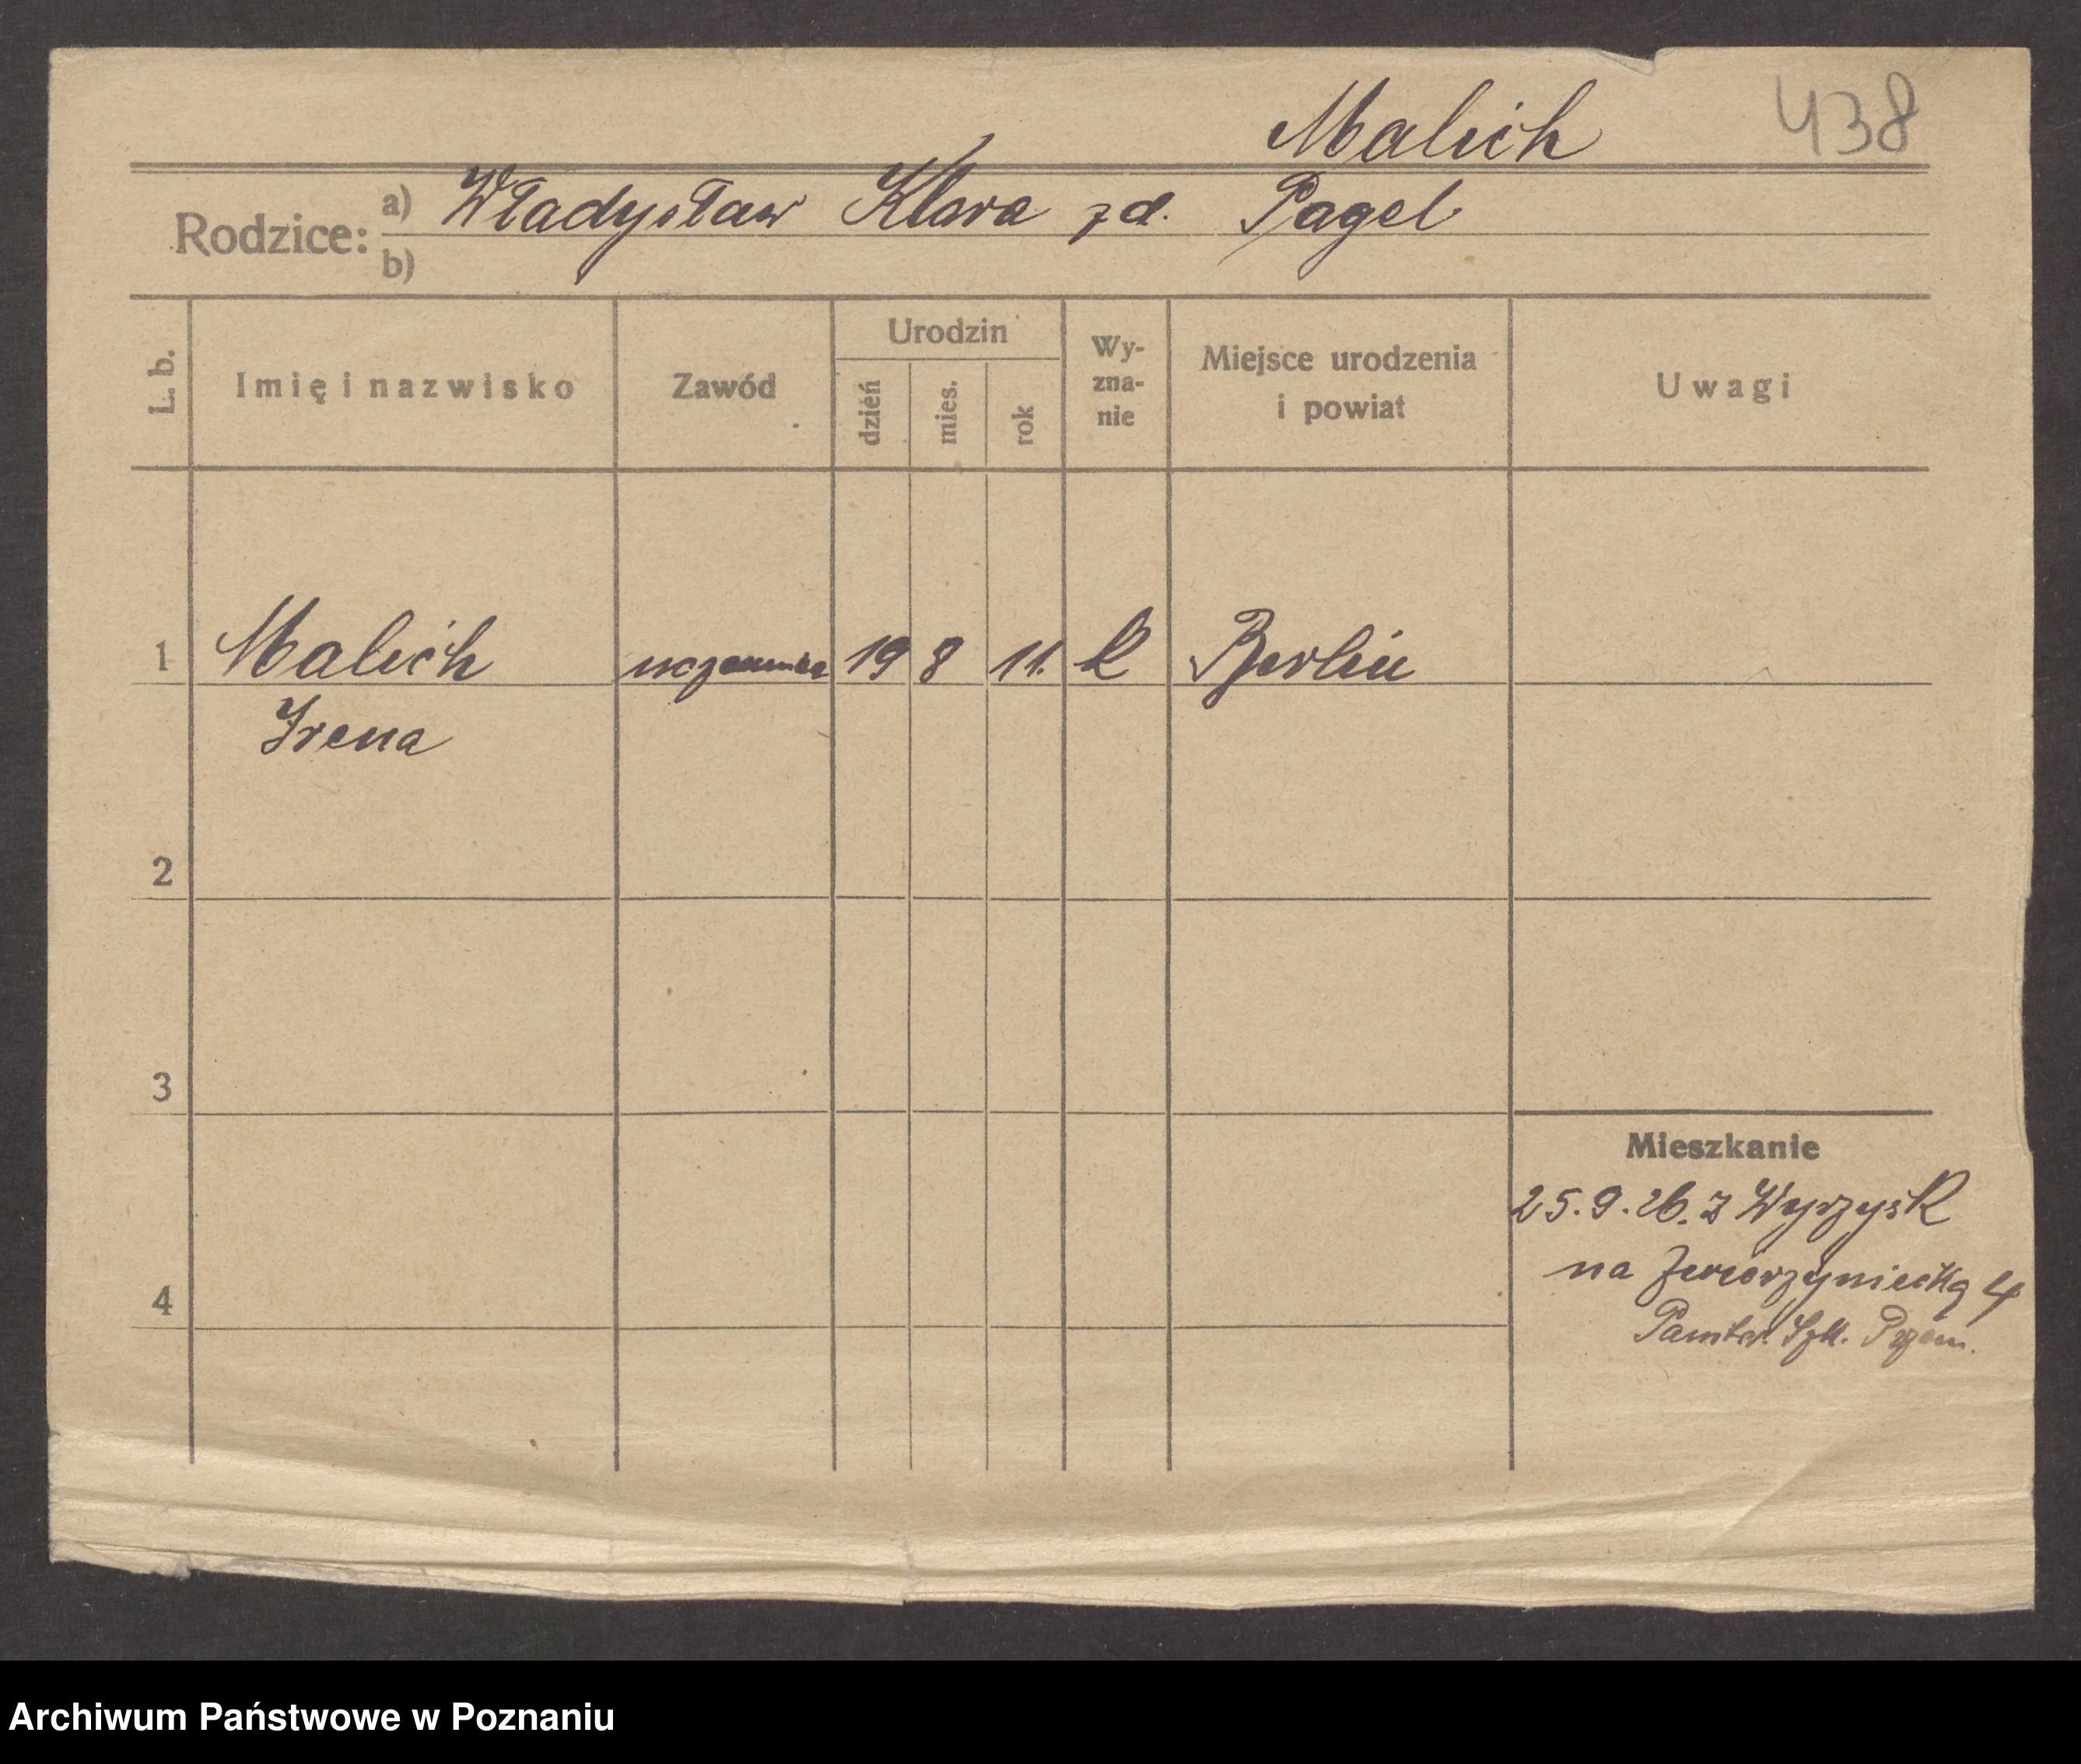 Malich 438
Rodzice: a) Władysław Klara zd. Pagel
b)
L. b.
Imię i nazwisko
Zawód
Urodzin
dzień
mies.
rok
Wy-
zna-
nie
Miejsce urodzenia
i powiat
Uwagi
1 Malich uczennica 19 8 11. k Berlin
Irena
2
3
4
Mieszkanie
25.9.26. z Wyrzysk
na Zwierzyniecką 4
Szk. Przem.
Archiwum Państwowe w Poznaniu